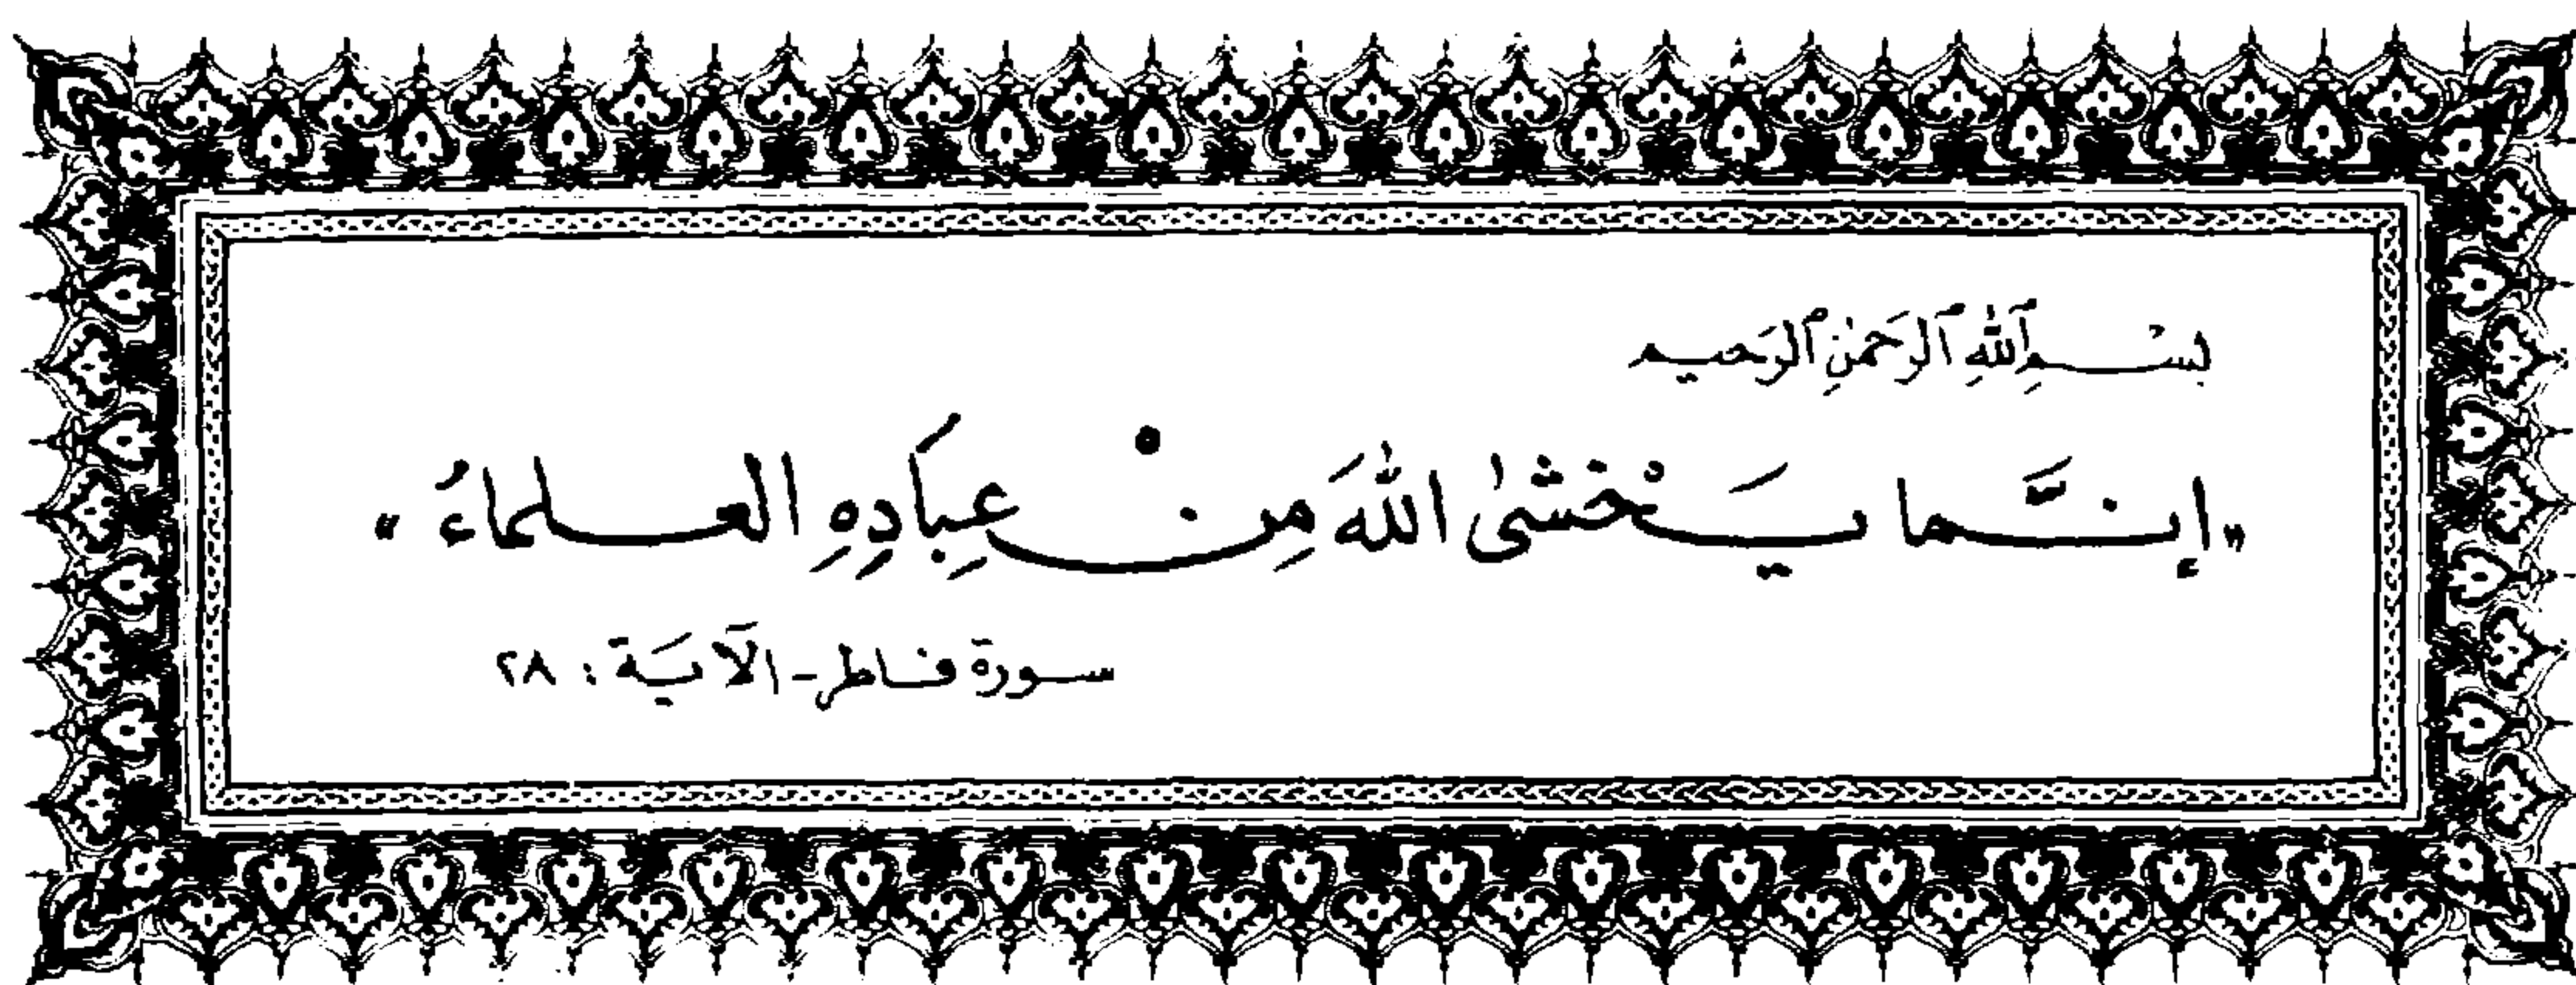 بِسْمِ ٱللهِ ٱلرَحمٰنِ ٱلرَحيم
«إنَّما يَخْشىٰ اللهَ مِنْ عِبَادِهِ العلماءُ»
سورة فاطر - الآيَة : ٢٨